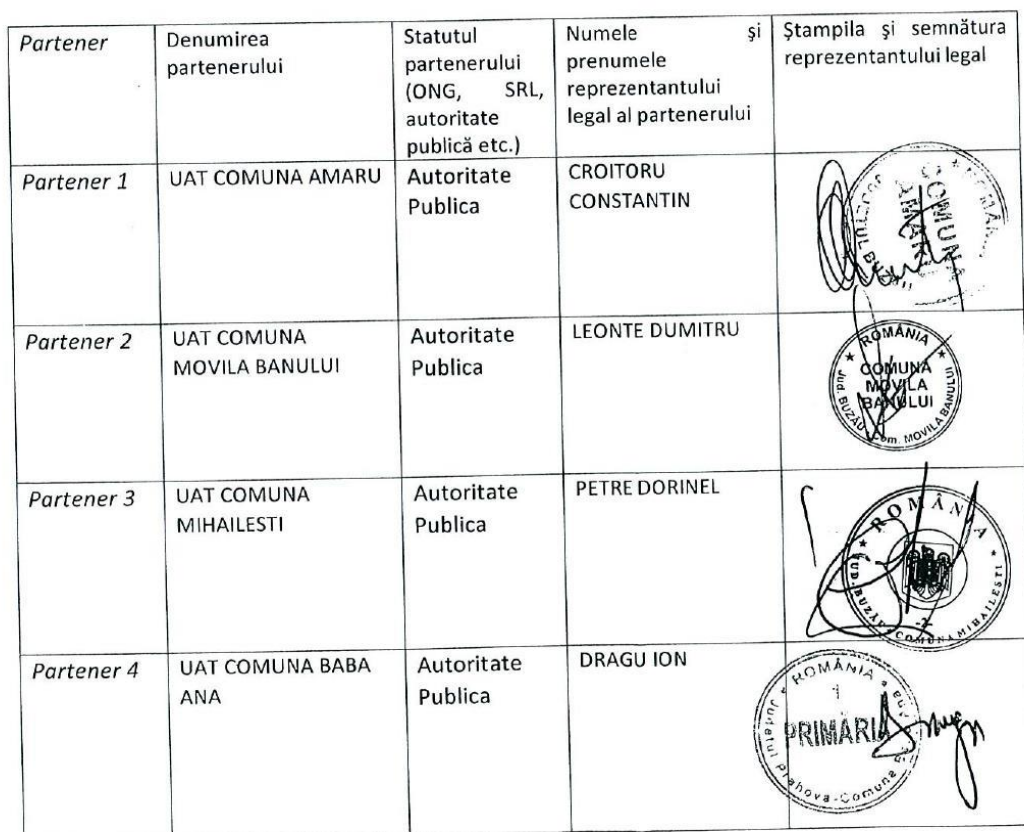 Partener
Denumirea
partenerului
Statutul
partenerului
(ONG, SRL,
autoritate
publică etc.)
Numele şi
prenumele
reprezentantului
legal al partenerului
Ştampila şi semnătura
reprezentantului legal
Partener 1
UAT COMUNA AMARU
Autoritate
Publica
CROITORU
CONSTANTIN
COMUNA
AMARU
JUDEŢUL BUZĂU
Partener 2
UAT COMUNA
MOVILA BANULUI
Autoritate
Publica
LEONTE DUMITRU
ROMÂNIA
COMUNA
MOVILA
BANULUI
Jud. BUZĂU Com. MOVILA BANULUI
Partener 3
UAT COMUNA
MIHAILESTI
Autoritate
Publica
PETRE DORINEL
ROMÂNIA
-2-
JUD. BUZĂU * COMUNA MIHAILESTI
Partener 4
UAT COMUNA BABA
ANA
Autoritate
Publica
DRAGU ION
ROMÂNIA
1
PRIMĂRIA
Judeţul Prahova-Comuna